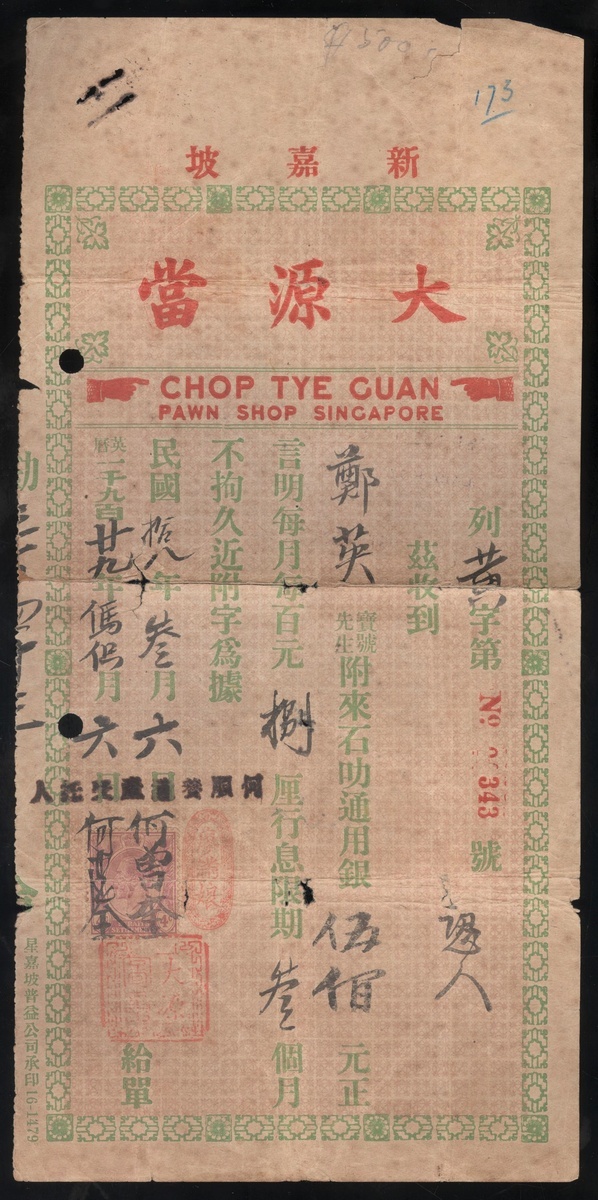 $500
173
新嘉坡
大源當
CHOP TYE GUAN
PAWN SHOP SINGAPORE
列黃字第 No 343 號
茲收到
鄭英 寶號 先生 附來石叻通用銀伍佰元正
言明每月每百元捌厘行息限期叁個月
不拘久近附字為據
民國拾八年叁月六日
英曆一千九百廿九年 月六日
何曾奎
給單
星嘉坡普益公司承印 16-1479